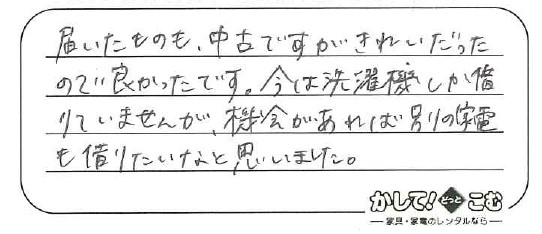 届いたものも、中古ですがきれいだった
ので良かったです。今は洗濯機しか借
りていませんが、機会があれば別の家電
も借りたいなと思いました。
かして!どっとこむ
家具・家電のレンタルなら